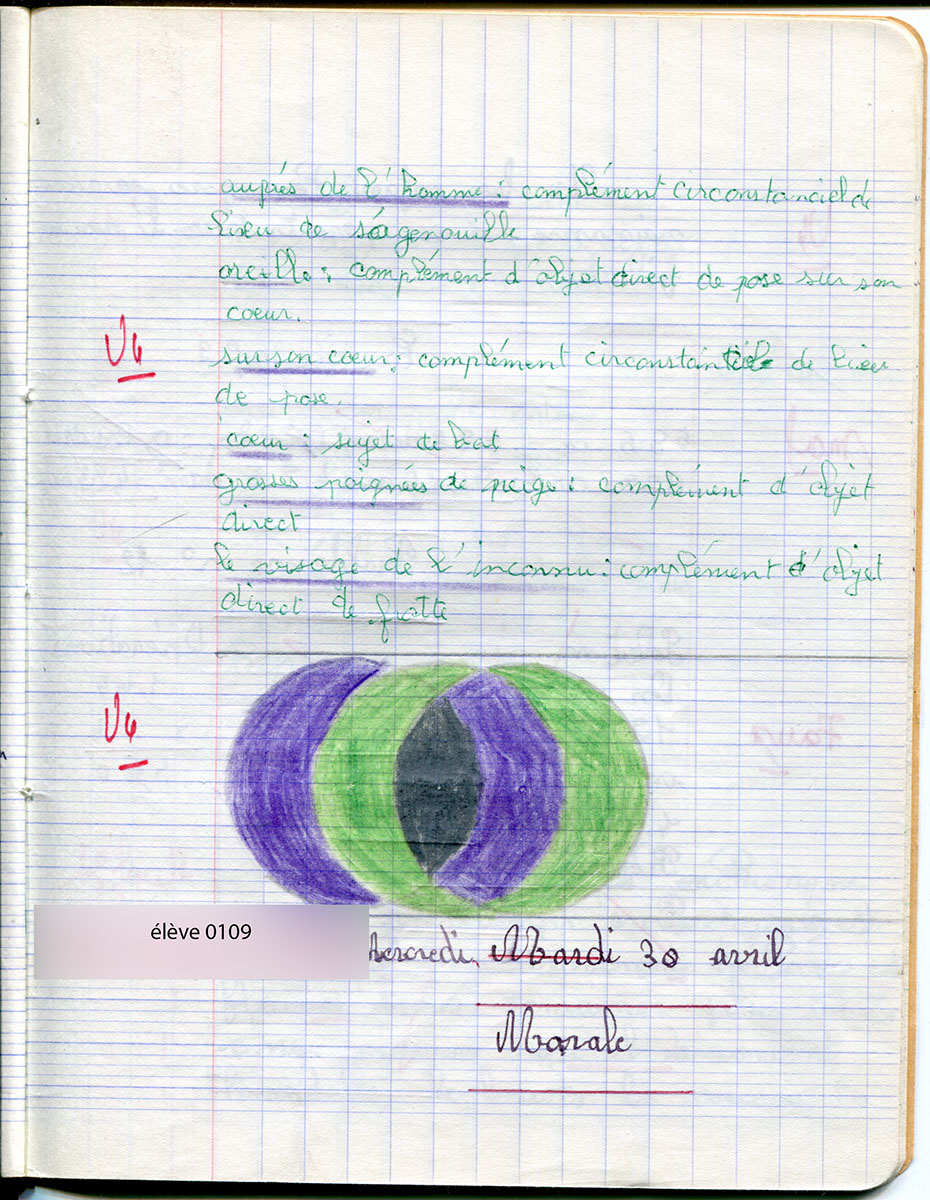 auprés de l'homme : complément circonstanciel de
lieu de s'agenouille
oreille : complément d'objet direct de pose sur son
coeur.
Vu
sur son coeur : complément circonstanciel de lieu
de pose.
coeur : sujet de bat
grosses poignées de neige : complément d'objet
direct
le visage de l'inconnu : complément d'objet
direct de frotte
Vu
élève 0109
Mercredi Mardi 30 avril
Morale